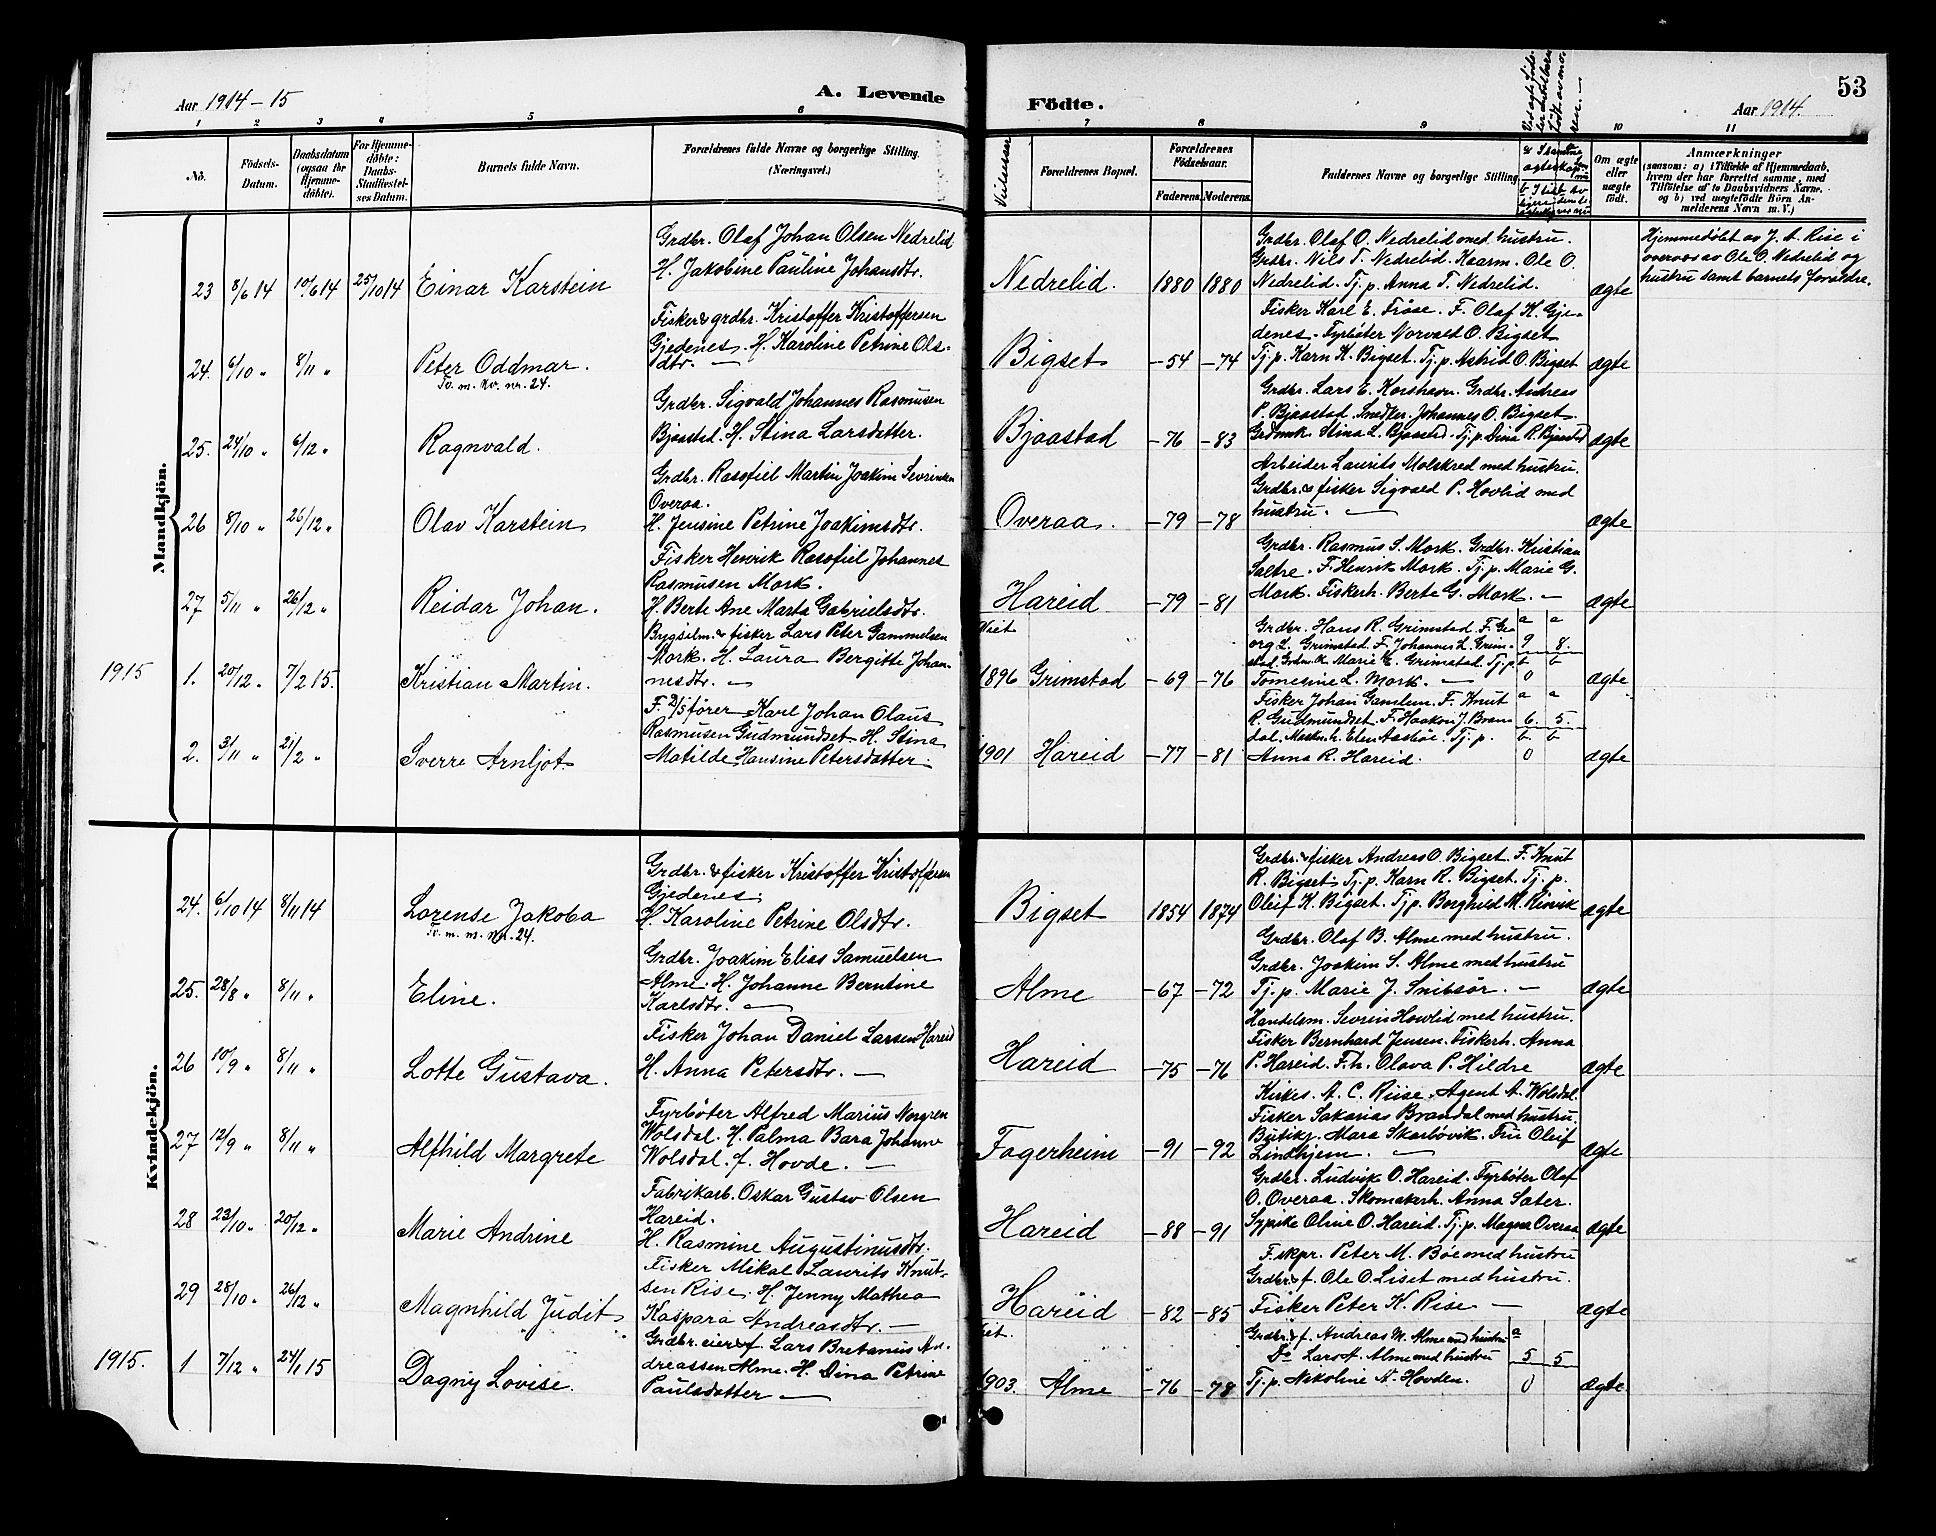 Aar 1914-15
A. Levende
Födte.
Aar 1914.
53
1 2 3 4 5 6 7 8 9 10 11
No.
Födsels-
Datum.
Daabsdatum
(ogsaa for
Hjemme-
döbte).
For Hjemme-
döbte:
Daabs-
Stadfæstel-
ses Datum.
Barnets fulde Navn.
Forældrenes fulde Navne og borgerlige Stilling.
(Næringsvei.)
Vielsesaar
Forældrenes Bopæl.
Forældrenes
Födselsaar.
Faderens. Moderens.
Faddernes Navne og borgerlige Stilling
Om ægte
eller
uægte
født.
Anmærkninger
(saasom: a) i Tilfælde af Hjemmedaab,
hvem der har forrettet samme, med
Tilföielse af to Daabsvidners Navne,
og b) ved uægtefödte Börn An-
melderens Navn m. V.)
Mandkjön.
23 8/6 14 10/6 14 25/10 14 Einar Karstein
Grdbr. Olaf Johan Olsen Nedrelid
H. Jakobine Pauline Johansdtr.
Nedrelid. 1880 1880
Grdbr. Olaf O. Nedrelid med hustru.
Grdbr. Nils T. Nedrelid. Kaarm. Ole O.
Nedrelid. Tj. p. Anna T. Nedrelid.
ægte
Hjemmedøbt av J. A. Rise i
overvær av Ole O. Nedrelid og
hustru samt barnets foreldre.
24. 6/10 " 8/11 " Peter Oddmar.
Tv. m. kv. nr. 24.
Fisker & grdbr. Kristoffer Kristoffersen
Gjedenes. H. Karoline Petrine Ols-
dtr. —
Bigset -54 -74
Fisker Karl E. Frøse. F. Olaf K. Gje-
denes. Fyrbøter Norvald O. Bigset
Tj. p. Karn K. Bigset. Tj. p. Astrid O. Bigset
ægte
25. 24/10 " 6/12 " Ragnvald.
Grdbr. Sigvald Johannes Rasmusen
Bjaastad. H. Stina Larsdatter.
Bjaastad -76 -83
Grdbr. Lars E. Korshavn. Grdbr. Andreas
P. Bjaastad. Snedker Johannes O. Bigset
Grdmk. Stina L. Bjaastad. Tj. p. Dina R. Bjaastad
ægte
26 8/10 " 26/12 " Olav Karstein
Grdbr. Rasofiel Martin Joakim Sevrinsen
Overaa.
H. Jensine Petrine Joakimsdtr.
Overaa. -79 -78
Arbeider Laurits Molskred med hustru.
Grdbr. & fisker Sigvald P. Hovlid med
hustru. —
ægte
27 5/11 " 26/12 " Reidar Johan.
Fisker Henrik Rasofiel Johannes
Rasmusen Mork.
H. Berte Ane Marta Gabrielsdtr.
Hareid -79 -81
Grdbr. Rasmus S. Mork. Grdbr. Kristian
Saltre. F. Henrik Mork. Tj. p. Marie G.
Mork. Fiskerh. Berte G. Mork. —
ægte
1915 1. 20/12 " 7/2 15. Kristian Martin.
Bygselm. & fisker Lars Peter Gammelsen
Mork. H. Laura Bergitte Johan-
nesdtr. —
Viet
1896 Grimstad -69 -76
Grdbr. Hans R. Grimstad. F. Ge-
org L. Grimstad. F. Johannes L. Grim-
stad. Grdmk. Marie E. Grimstad. Tj. p.
Tomesine L. Mork. —
a a
9 8.
b b
0
ægte
2. 3/11 " 21/2 " Sverre Arnljot.
F. D/S fører Karl Johan Olaus
Rasmusen Gudmundset H. Stina
Matilde Hansine Petersdatter.
1901 Hareid -77 -81
Fisker Johan Gamlem. F. Knut
R. Gudmundset. F. Haakon J. Bran-
dal. Maskn. h. Elen Aasbøe. Tj. p.
Anna R. Hareid.
a a
6. 5.
b b
0
ægte
Kvindekjön.
24. 6/10 14 8/11 14 Lorense Jakoba
Tv. m. m. nr. 24.
Grdbr. & fisker Kristoffer Kristoffersen
Gjedenes.
H. Karoline Petrine Olsdtr.
Bigset 1854 1874
Grdbr. & fisker Andreas O. Bigset. F. Knut
R. Bigset. Tj. p. Karn R. Bigset. Tj. p.
Oleif K. Bigset. Tj. p. Borghild M. Kirvik
ægte
25. 28/8 " 8/11 " Eline.
Grdbr. Joakim Elias Samuelsen
Alme. H. Johanne Berntine
Karlsdtr. —
Alme -67 -72
Grdbr. Olaf B. Alme med hustru.
Grdbr. Joakim S. Alme med hustru
Tj. p. Marie J. Snibsør. —
ægte
26 10/9 " 8/11 " Lotte Gustava.
Fisker Johan Daniel Larsen Hareid
H. Anna Petersdtr. —
Hareid -75 -76
Handelsm. Sevrin Hovlid med hustru.
Fisker Bernhard Jensen. Fiskerh. Anna
P. Hareid. F. h. Olava P. Hildre
ægte
27 12/9 " 8/11 " Alfhild Margrete
Fyrbøter Alfred Marius Norgren
Wolsdal. H. Palma Bara Johanne
Wolsdal f. Hovde. —
Fagerheim -91 -92
Kirkes. A. C. Riise. Agent A. Wolsdal
Fisker Sakarias Brandal med hustru.
Butikj. Mara Skarbøvik. Fru Oleif
Lindhjem. —
ægte
28 23/10 " 20/12 " Marie Andrine
Fabrikarb. Oskar Gustav Olsen
Hareid.
H. Rasmine Augustinusdtr.
Hareid -88 -91
Grdbr. Ludvik O. Hareid. Fyrbøter Olaf
O. Overaa. Skomakerh. Anna Sater.
Sypike Oline O. Hareid. Tj. p. Magna Overaa
ægte
29 28/10 " 26/12 " Magnhild Judit
Fisker Mikal Laurits Knut-
sen Rise. H. Jenny Mathea
Kaspara Andreasdtr. —
Hareid -82 -85
F. skpr. Peter M. Bøe med hustru
Grdbr. & f. Ole O. Liset med hustru.
Fisker Peter K. Rise —
ægte
1915. 1 7/12 " 24/1 15 Dagny Lovise.
Grdbr. eier & f. Lars Bretanus An-
dreassen Alme. H. Dina Petrine
Paulsdatter —
1903. Alme -76 -78
Grdbr. & f. Andreas M. Alme med hustru
Do Lars A. Alme med hustru
Tj. p. Nikoline A. Hovden.
a
5 5
0
ægte